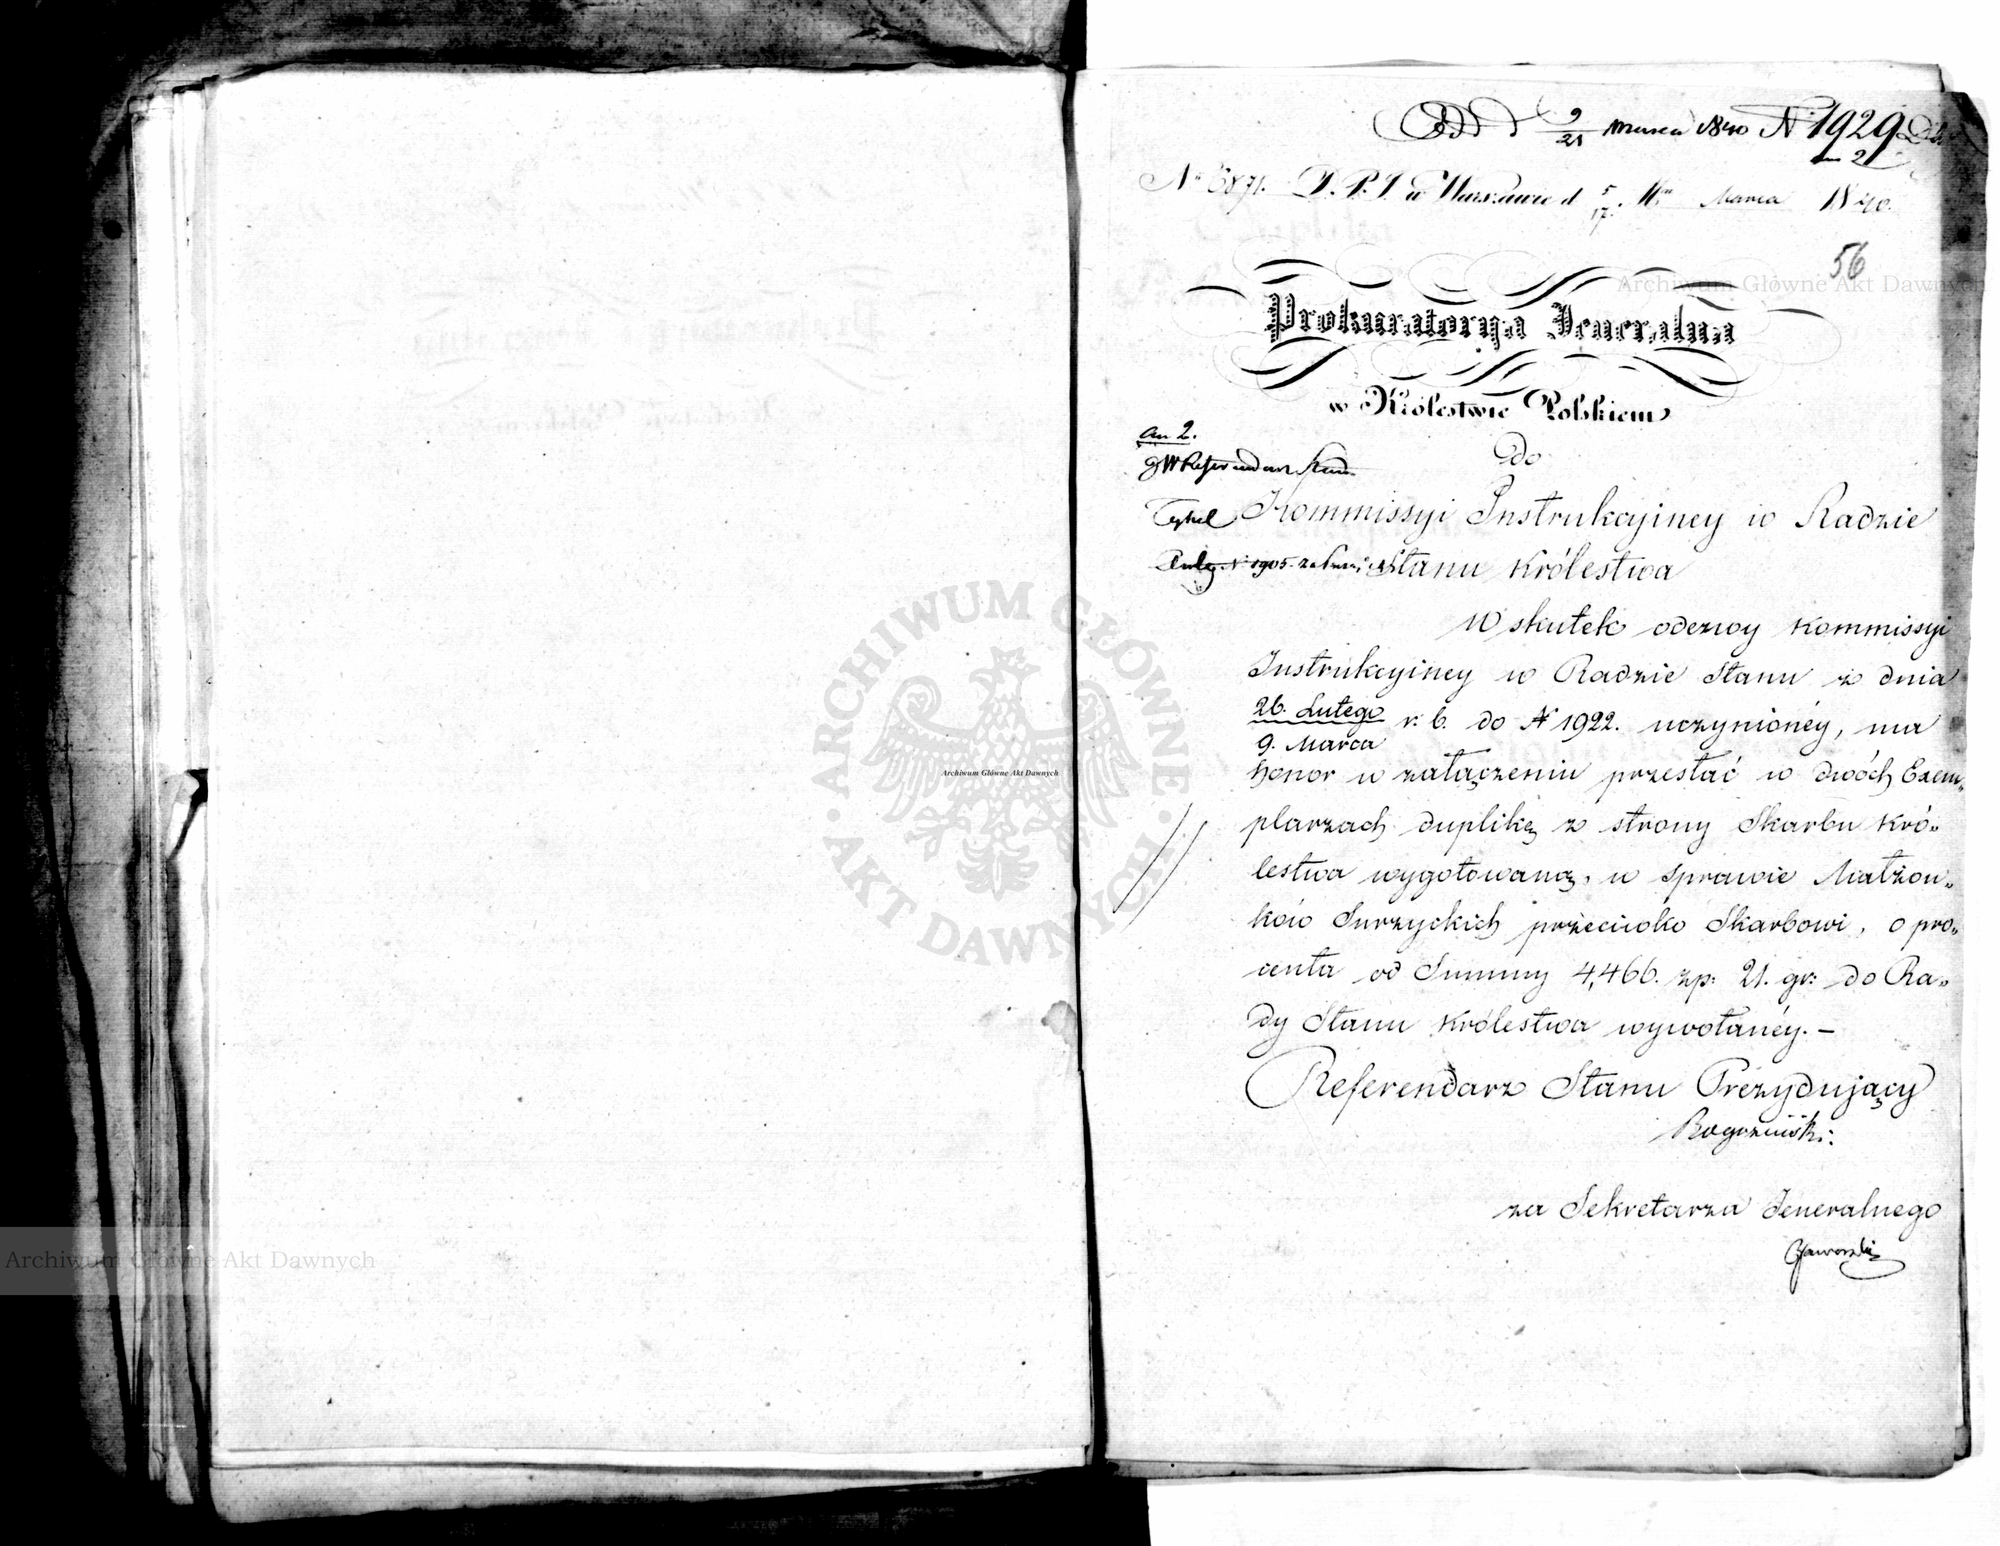 9/21 Marca 1840 N 1929
an 2
Nº 6871. D. P. I. w Warszawie d 5/17 Mca Marca 1840.
56
Archiwum Główne Akt Dawnych
Prokuratorya Jeneralna
w Królestwie Polskiem
an 2.
JW Referendarz Stanu
do
Kommissyi Instrukcyiney w Radzie
Stanu Królestwa
N 1905
W skutek odezwy Kommissyi
Instrukcyiney w Radzie Stanu z dnia
26. Lutego
9. Marca
r: b. do N 1922. uczynionéy, ma
honor w załączeniu przesłać w dwóch Exem„
plarzach duplikę z strony Skarbu Kró„
lestwa wygotowaną, w sprawie Małżon„
ków Surzyckich przeciwko Skarbowi, o pro„
centa od Summy 4,466. zp: 21. gr: do Ra„
dy Stanu Królestwa wywołanéy. –
Referendarz Stanu Prezydujący
za Sekretarza Jeneralnego
Jaworski
ARCHIWUM GŁÓWNE
AKT DAWNYCH
Archiwum Główne Akt Dawnych
Archiwum Główne Akt Dawnych